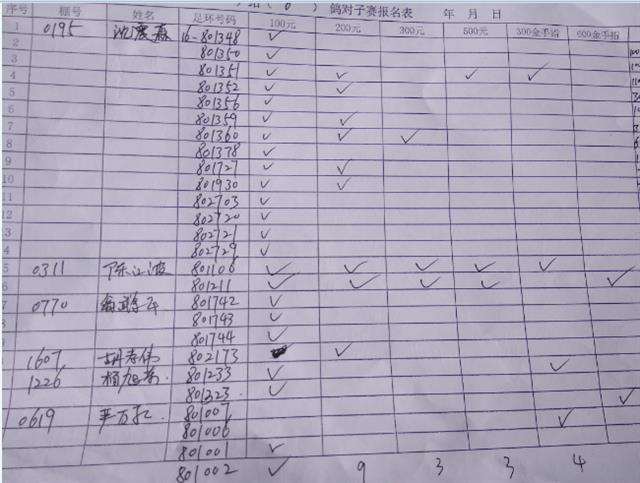 鸽对子赛报名表 年 月 日
序号 棚号 姓名 足环号码 100元 200元 300元 500元 300金手指 600金手指
1 0195 沈震森 16-801348 ✓
2 801350 ✓
3 801351 ✓ ✓ ✓ ✓
4 801352 ✓ ✓
5 801356 ✓
801359 ✓ ✓
7 801360 ✓ ✓ ✓
8 801378 ✓
9 801727 ✓ ✓
10 801930 ✓ ✓
11 802703 ✓
12 802720 ✓
802721 ✓
4 802729 ✓
5 0311 陈江波 801106 ✓ ✓ ✓ ✓ ✓
6 801211 ✓ ✓ ✓ ✓ ✓
7 0770 801742 ✓
801743 ✓
801744 ✓
1607 胡孝伟 802173 ✓
1226 杨旭 801233 ✓ ✓
801323 ✓
0619 801007 ✓
801006 ✓
801001 ✓
801002 ✓ 9 3 3 4